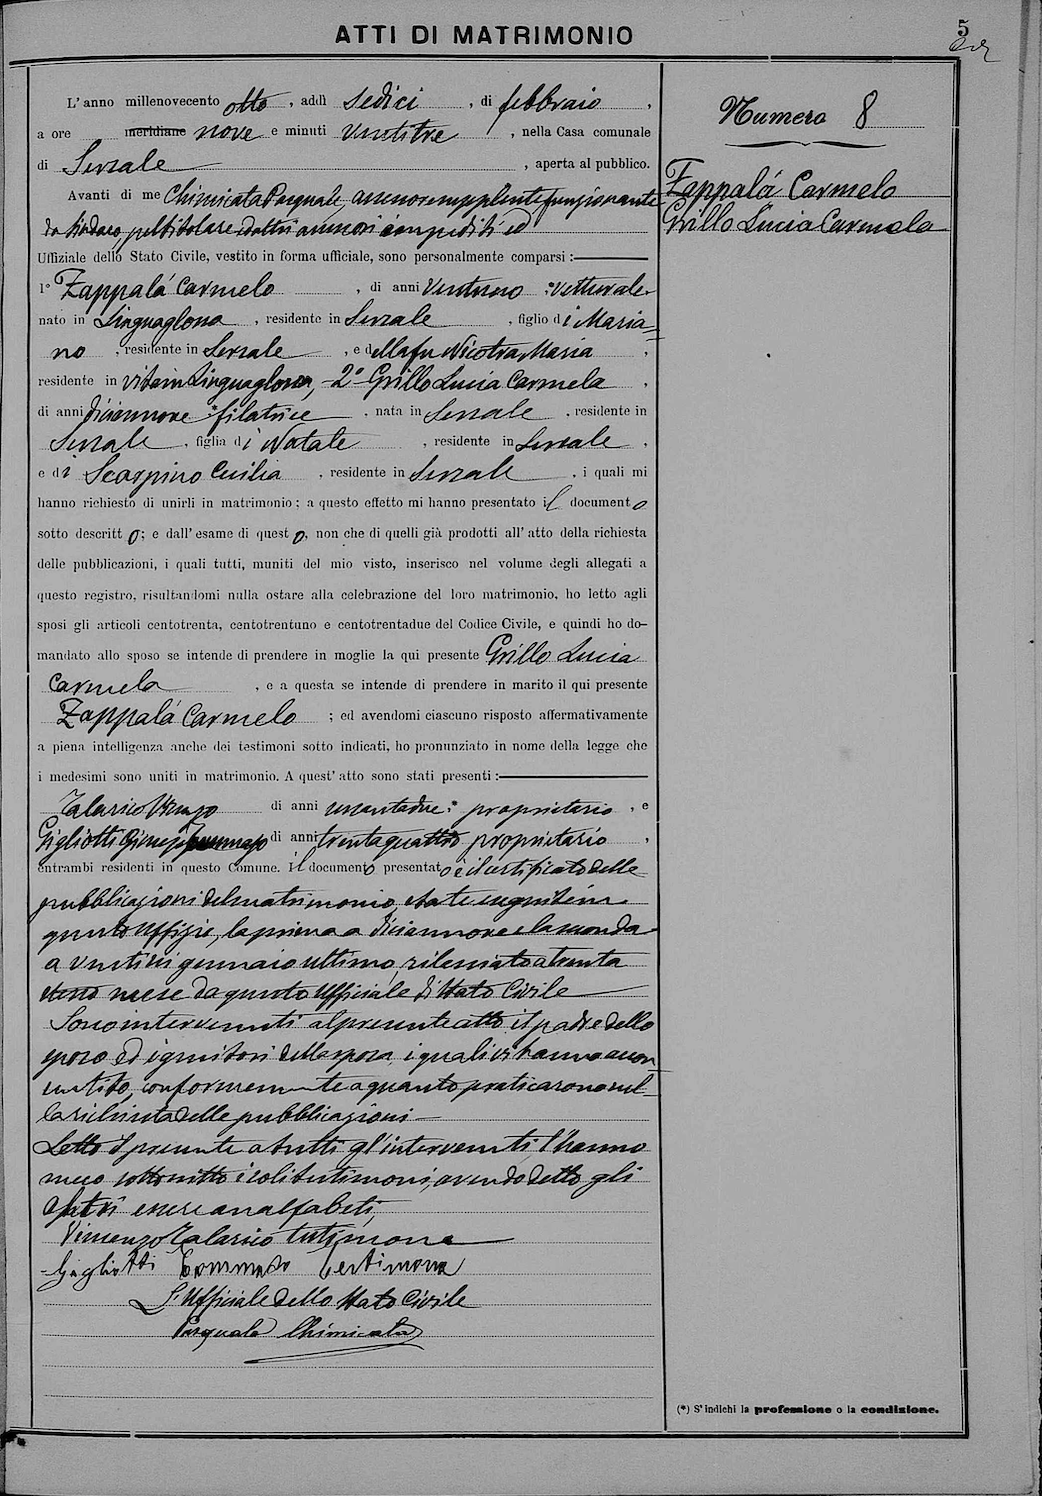 ATTI DI MATRIMONIO
5
Numero 8
Zappalá Carmelo
Grillo Lucia Carmela
L'anno millenovecento otto, addì sedici, di febbraio,
a ore meridiane nove e minuti ventitre, nella Casa comunale
di Sersale, aperta al pubblico.
Avanti di me Chimirata Pasquale, assessore supplente funzionante
da Sindaco, pel titolare ed altri assessori impediti ed
Uffiziale dello Stato Civile, vestito in forma ufficiale, sono personalmente comparsi:
1° Zappalá Carmelo, di anni ventuno *vetturale,
nato in Linguaglossa, residente in Sersale, figlio di Maria=
no, residente in Sersale, e della fu Nicotra Maria,
residente in vita in Linguaglossa, -2° Grillo Lucia Carmela,
di anni diciannove *filatrice, nata in Sersale, residente in
Sersale, figlia di Natale, residente in Sersale,
e di Scarpino Cecilia, residente in Sersale, i quali mi
hanno richiesto di unirli in matrimonio; a questo effetto mi hanno presentato il documento
sotto descritto; e dall'esame di questo, non che di quelli già prodotti all'atto della richiesta
delle pubblicazioni, i quali tutti, muniti del mio visto, inserisco nel volume degli allegati a
questo registro, risultandomi nulla ostare alla celebrazione del loro matrimonio, ho letto agli
sposi gli articoli centotrenta, centotrentuno e centotrentadue del Codice Civile, e quindi ho do-
mandato allo sposo se intende di prendere in moglie la qui presente Grillo Lucia
Carmela, e a questa se intende di prendere in marito il qui presente
Zappalá Carmelo; ed avendomi ciascuno risposto affermativamente
a piena intelligenza anche dei testimoni sotto indicati, ho pronunziato in nome della legge che
i medesimi sono uniti in matrimonio. A quest'atto sono stati presenti:
Talarico Vincenzo di anni * proprietario, e
Gigliotti Tommaso di anni trentaquattro proprietario,
entrambi residenti in questo Comune. Il documento presentato è il certificato delle
pubblicazioni del matrimonio, state eseguite in
questo Uffizio, la prima a diciannove e la seconda
a ventisei gennaio ultimo, rilasciato a trenta
stesso mese da questo Ufficiale di Stato Civile
Sono intervenuti al presente atto il padre dello
sposo ed i genitori della sposa, i quali vi hanno accon
sentito, conformemente a quanto praticarono nel-
la richiesta delle pubblicazioni —
Letto il presente a tutti gl'intervenuti l'hanno
meco sottoscritto i soli testimoni, avendo detto gli
altri essere analfabeti,
Vincenzo Talarico testimone
Gigliotti Tommaso testimone
L'Ufficiale dello Stato Civile
Pasquale Chimirata
(*) S'indichi la professione o la condizione.